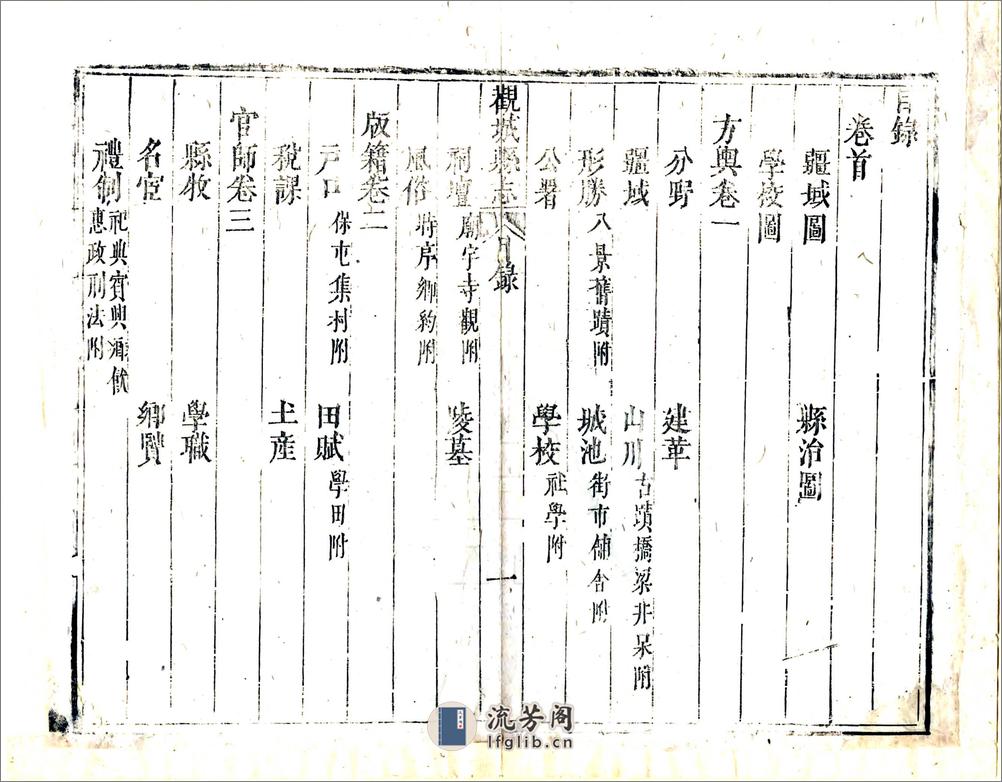 目錄
卷首
疆域圖　縣治圖
學校圖
方輿卷一
分野　建革
疆域　山川古蹟橋梁井泉附
形勝八景舊蹟附　城池街市舖舍附
公署　學校社學附
觀城縣志　目錄　一
祠壇廟宇寺觀附　陵墓
風俗時序鄉約附
版籍卷二
戶口保屯集村附　田賦學田附
稅課　土產
官師卷三
縣牧　學職
名宦　鄉賢
禮制祀典賓興酒飲惠政刑法附
流芳阁
lfglib.cn